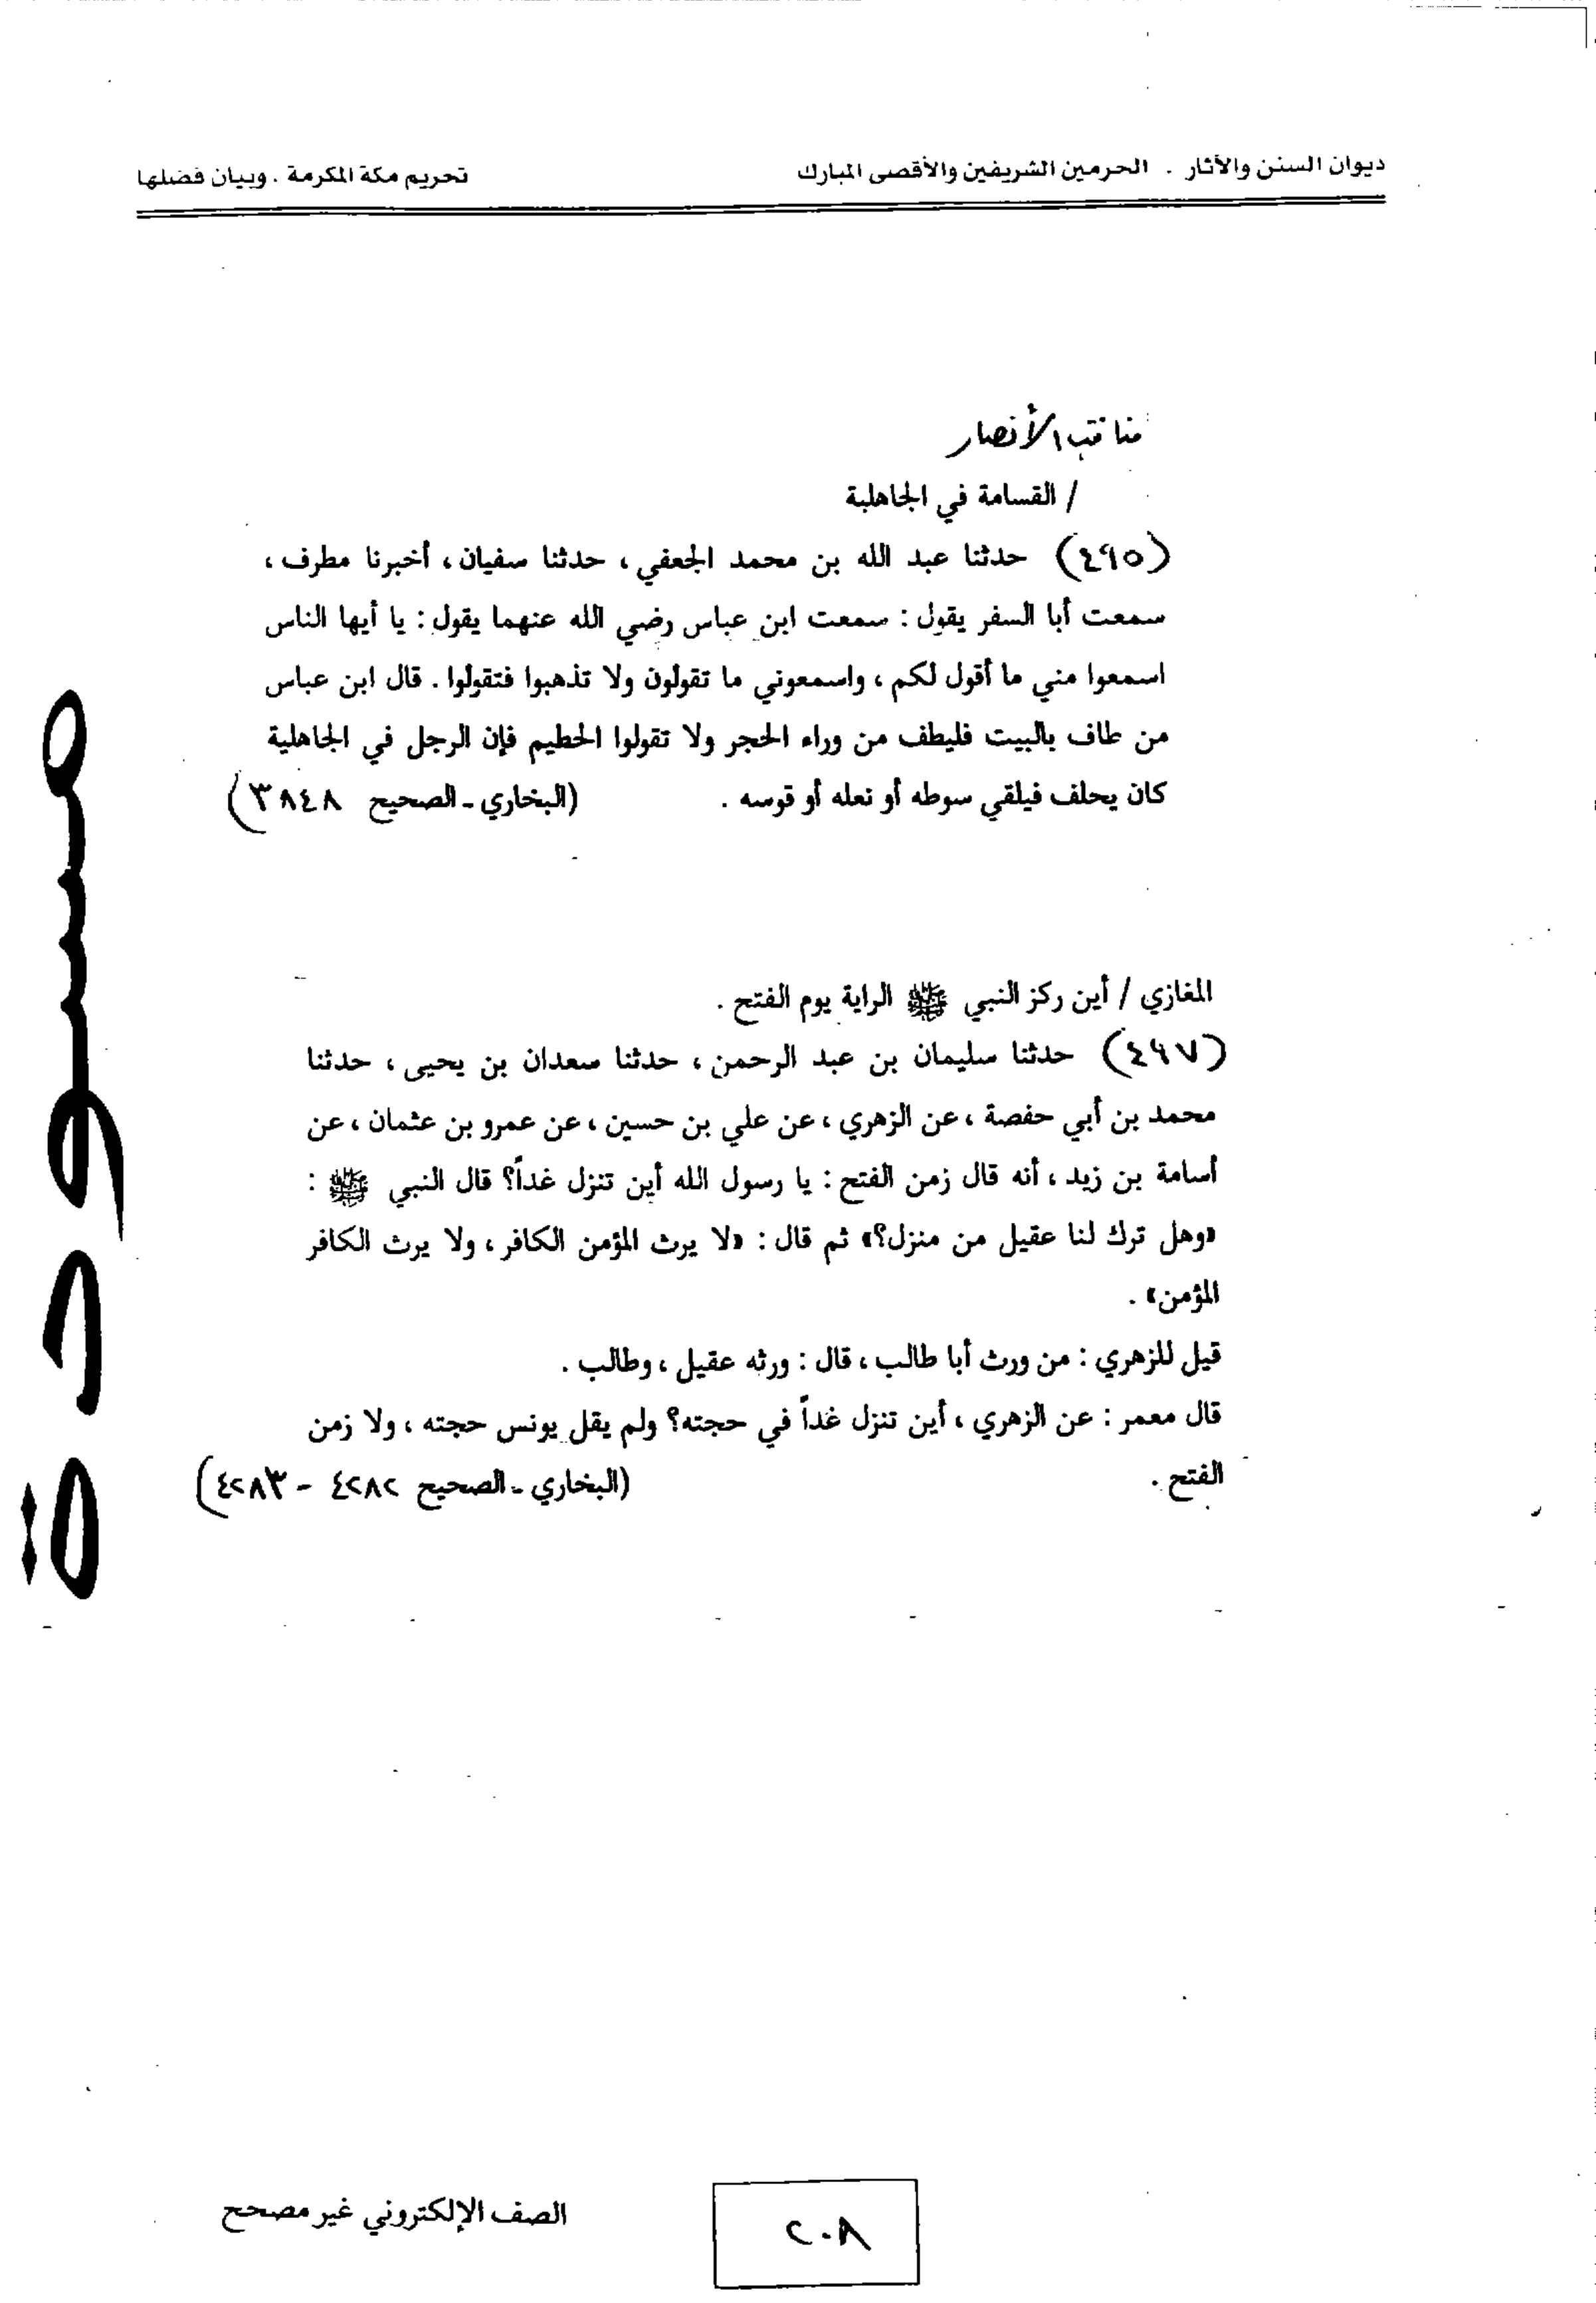 ديوان السنن والآثار . الحرمين الشريفين والأقصى المبارك تحريم مكة المكرمة . وبيان فضلها
مناقب الأنصار
/ القسامة في الجاهلية
(٤٩٥) حدثنا عبد الله بن محمد الجعفي ، حدثنا سفيان ، أخبرنا مطرف ،
سمعت أبا السفر يقول : سمعت ابن عباس رضي الله عنهما يقول : يا أيها الناس
اسمعوا مني ما أقول لكم ، واسمعوني ما تقولون ولا تذهبوا فتقولوا . قال ابن عباس
من طاف بالبيت فليطف من وراء الحجر ولا تقولوا الحطيم فإن الرجل في الجاهلية
كان يحلف فيلقي سوطه أو نعله أو قوسه . (البخاري ـ الصحيح ٣٨٤٨)
المغازي / أين ركز النبي ﷺ الراية يوم الفتح .
(٤٩٧) حدثنا سليمان بن عبد الرحمن ، حدثنا سعدان بن يحيى ، حدثنا
محمد بن أبي حفصة ، عن الزهري ، عن علي بن حسين ، عن عمرو بن عثمان ، عن
أسامة بن زيد ، أنه قال زمن الفتح : يا رسول الله أين تنزل غداً؟ قال النبي ﷺ :
«وهل ترك لنا عقيل من منزل؟» ثم قال : «لا يرث المؤمن الكافر ، ولا يرث الكافر
المؤمن» .
قيل للزهري : من ورث أبا طالب ، قال : ورثه عقيل ، وطالب .
قال معمر : عن الزهري ، أين تنزل غداً في حجته؟ ولم يقل يونس حجته ، ولا زمن
الفتح . (البخاري ـ الصحيح ٤٢٨٢ - ٤٢٨٣)
مسودة
الصف الإلكتروني غير مصحح
٢٠٨